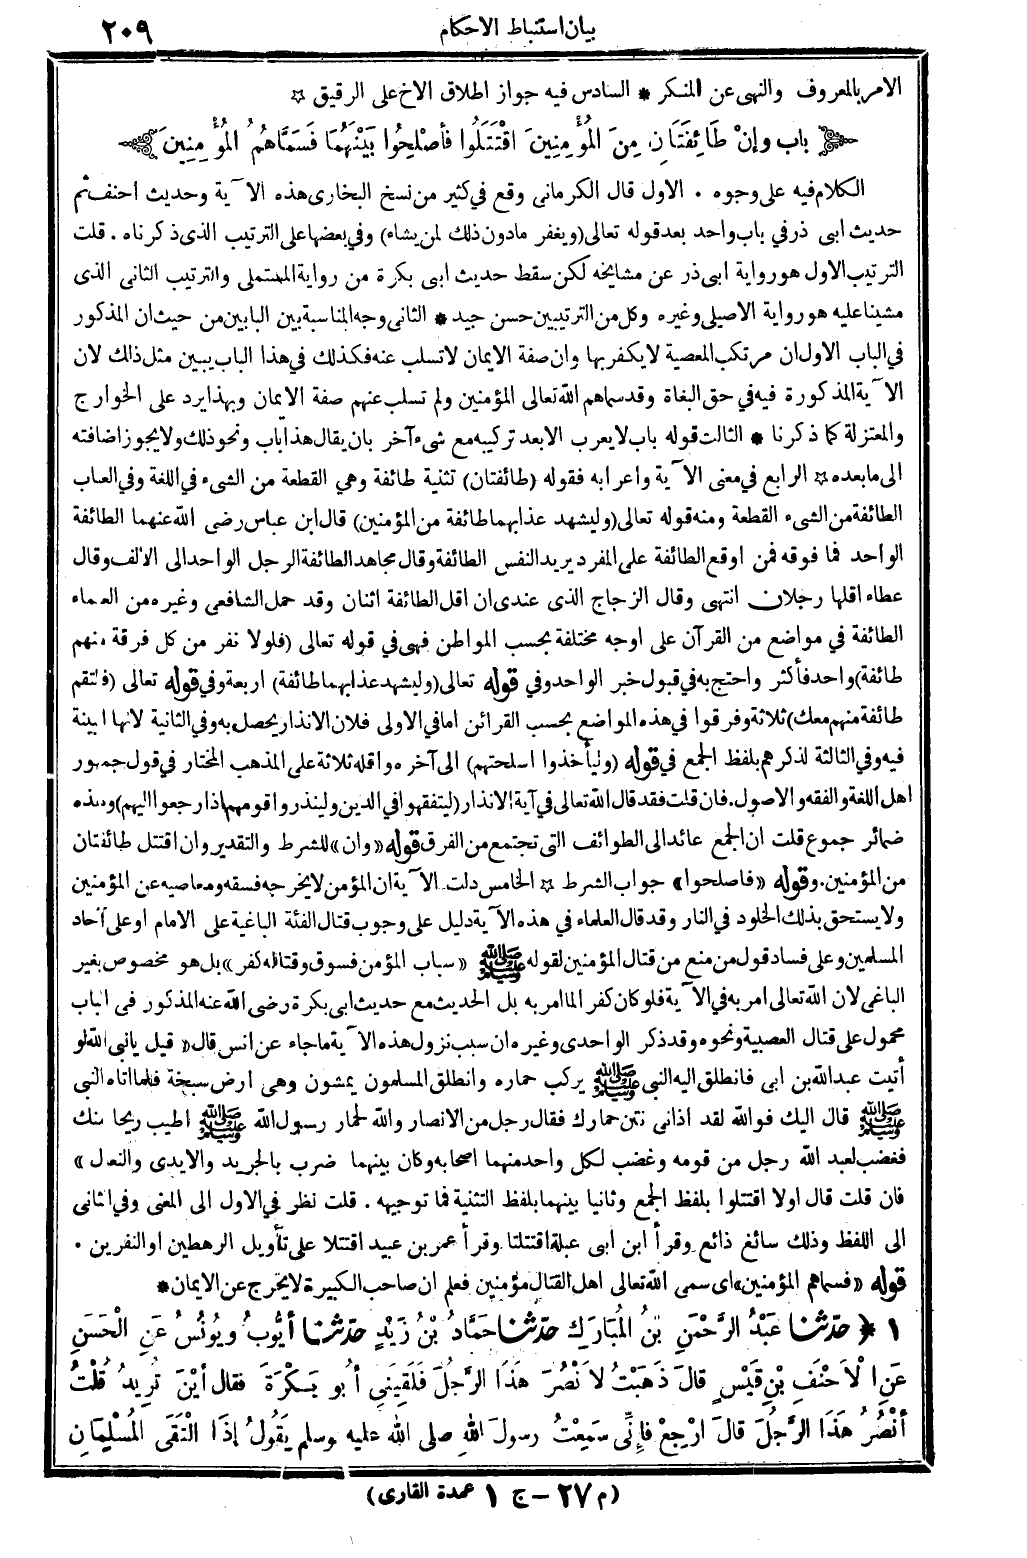 بيان استنباط الاحكام ٢٠٩
الامر بالمعروف والنهى عن المنكر * السادس فيه جواز اطلاق الاخ على الرقيق ☆
باب وإنْ طَائِفَتَانِ مِنَ المُؤْمِنِينَ اقْتَتَلُوا فأصْلِحُوا بَيْنَهُمَا فَسَمَّاهُمُ المُؤْمِنِينَ
الكلام فيه على وجوه . الاول قال الكرمانى وقع في كثير من نسخ البخارى هذه الآية وحديث احنف ثم
حديث ابى ذر في باب واحد بعد قوله تعالى (ويغفر مادون ذلك لمن يشاء) وفي بعضها على الترتيب الذى ذكرناه . قلت
الترتيب الاول هو رواية ابى ذر عن مشايخه لكن سقط حديث ابى بكرة من رواية المستملى والترتيب الثانى الذى
مشينا عليه هو رواية الاصيلى وغيره وكل من الترتيبين حسن جيد * الثانى وجه المناسبة بين البابين من حيث ان المذكور
في الباب الاول ان مرتكب المعصية لا يكفر بها وان صفة الايمان لا تسلب عنه فكذلك في هذا الباب يبين مثل ذلك لان
الآية المذكورة فيه في حق البغاة وقد سماهم الله تعالى المؤمنين ولم تسلب عنهم صفة الايمان وبهذا يرد على الخوارج
والمعتزلة كما ذكرنا * الثالث قوله باب لا يعرب الا بعد تركيبه مع شىء آخر بان يقال هذا باب ونحو ذلك ولا يجوز اضافته
الى ما بعده ☆ الرابع في معنى الآية واعرابه فقوله (طائفتان) تثنية طائفة وهي القطعة من الشىء في اللغة وفي العباب
الطائفة من الشىء القطعة ومنه قوله تعالى (وليشهد عذابهما طائفة من المؤمنين) قال ابن عباس رضى الله عنهما الطائفة
الواحد فما فوقه فمن اوقع الطائفة على المفرد يريد النفس الطائفة وقال مجاهد الطائفة الرجل الواحد الى الالف وقال
عطاء اقلها رجلان انتهى وقال الزجاج الذى عندى ان اقل الطائفة اثنان وقد حمل الشافعى وغيره من العلماء
الطائفة في مواضع من القرآن على اوجه مختلفة بحسب المواطن فهى في قوله تعالى (فلولا نفر من كل فرقة منهم
طائفة) واحد فأكثر واحتج به في قبول خبر الواحد وفي قوله تعالى (وليشهد عذابهما طائفة) اربعة وفي قوله تعالى (فلتقم
طائفة منهم معك) ثلاثة وفرقوا في هذه المواضع بحسب القرائن اما في الاولى فلان الانذار يحصل به وفي الثانية لانها البينة
فيه وفي الثالثة لذكرهم بلفظ الجمع في قوله (وليأخذوا اسلحتهم) الى آخره واقله ثلاثة على المذهب المختار في قول جمهور
اهل اللغة والفقه والاصول. فان قلت فقد قال الله تعالى في آية الانذار (ليتفقهوا في الدين ولينذروا قومهم اذا رجعوا اليهم) وهذه
ضمائر جموع قلت ان الجمع عائد الى الطوائف التى تجتمع من الفرق قوله «وان» للشرط والتقدير وان اقتتل طائفتان
من المؤمنين. وقوله «فاصلحوا» جواب الشرط ☆ الخامس دلت الآية ان المؤمن لا يخرجه فسقه ومعاصيه عن المؤمنين
ولا يستحق بذلك الخلود في النار وقد قال العلماء في هذه الآية دليل على وجوب قتال الفئة الباغية على الامام او على آحاد
المسلمين وعلى فساد قول من منع من قتال المؤمنين لقوله ﷺ «سباب المؤمن فسوق وقتاله كفر» بل هو مخصوص بغير
الباغى لان الله تعالى امر به في الآية فلو كان كفر الما امر به بل الحديث مع حديث ابى بكرة رضى الله عنه المذكور فى الباب
محمول على قتال العصبية ونحوه وقد ذكر الواحدى وغيره ان سبب نزول هذه الآية ما جاء عن انس قال «قيل يانبى الله لو
أتيت عبد الله بن ابى فانطلق اليه النبى ﷺ يركب حماره وانطلق المسلمون يمشون وهى ارض سبخة فلما اتاه النبى
ﷺ قال اليك فوالله لقد اذانى نتن حمارك فقال رجل من الانصار والله لحمار رسول الله ﷺ اطيب ريحا منك
فغضب لعبد الله رجل من قومه وغضب لكل واحد منهما اصحابه وكان بينهما ضرب بالجريد والايدى والنعال»
فان قلت قال اولا اقتتلوا بلفظ الجمع وثانيا بينهما بلفظ التثنية فما توجيهه . قلت نظر في الاول الى المعنى وفي الثانى
الى اللفظ وذلك سائغ ذائع وقرأ ابن ابى عبلة اقتتلتا وقرأ عمر بن عبيد اقتتلا على تأويل الرهطين او النفرين .
قوله «فسماهم المؤمنين» اى سمى الله تعالى اهل القتال مؤمنين فعلم ان صاحب الكبيرة لا يخرج عن الايمان *
١ ﴿ حَدّثنا عَبْدُ الرَّحْمَنِ بْنُ المُبَارَكِ حَدّثنا حَمَّادُ بْنُ زَيْدٍ حَدّثنا أيُّوبُ ويُونُسُ عَنِ الْحَسَنِ
عَنِ الْأَحْنَفِ بْنِ قَيْسٍ قالَ ذَهَبْتُ لأنْصُرَ هَذَا الرَّجُلَ فَلَقِيَنِى أبُو بَكْرَةَ فقال أيْنَ تُرِيدُ قُلْتُ
أنْصُرُ هَذَا الرَّجُلَ قالَ ارْجِعْ فإِنِّى سَمِعْتُ رسولَ اللهِ صلى الله عليه وسلم يَقُولُ إذَا الْتَقَى المُسْلِمانِ
(م ٢٧ - ج ١ عمدة القارى)